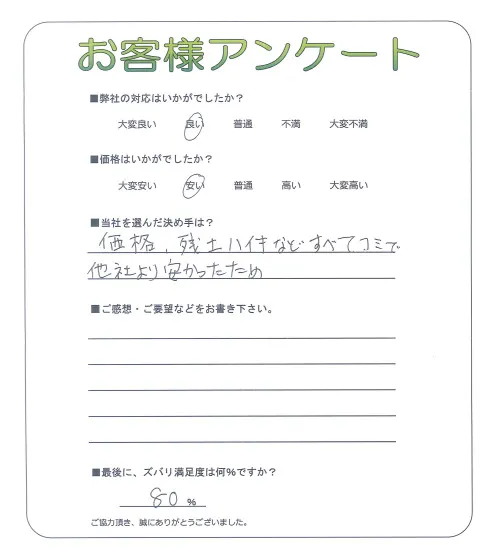 お客様アンケート
■弊社の対応はいかがでしたか？
大変良い 良い 普通 不満 大変不満
■価格はいかがでしたか？
大変安い 安い 普通 高い 大変高い
■当社を選んだ決め手は？
価格、残土ハイキなどすべてコミで
他社より安かったため
■ご感想・ご要望などをお書き下さい。
■最後に、ズバリ満足度は何%ですか？
80 %
ご協力頂き、誠にありがとうございました。